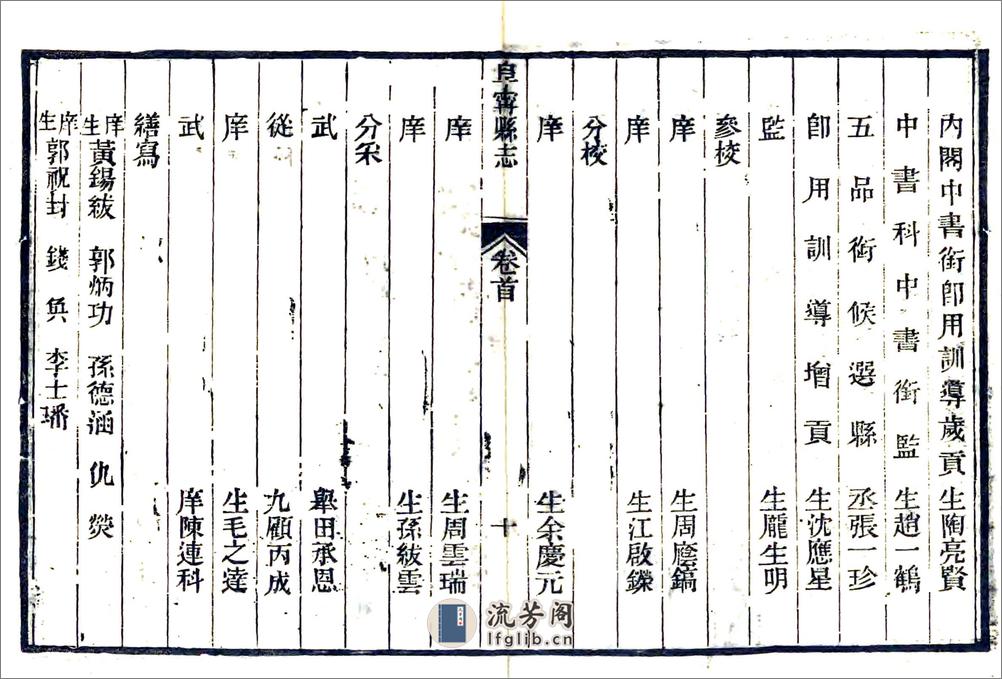 內閣中書銜卽用訓導歲貢生陶亮賢
中書科中書銜監生趙一鶴
五品銜候選縣丞張一珍
卽用訓導增貢生沈應星
監生龐生明
參校
庠生周廕鎬
庠生江啟鑅
分校
庠生余慶元
阜寧縣志 卷首 十
庠生周雲瑞
庠生孫紱雲
分采
武舉田承恩
從九顧丙成
庠生毛之達
武庠陳連科
繕寫
庠生黃錫紱 郭炳功 孫德涵 仇熒
庠生郭祝封 錢奐 李士璠
流芳阁
lfglib.cn